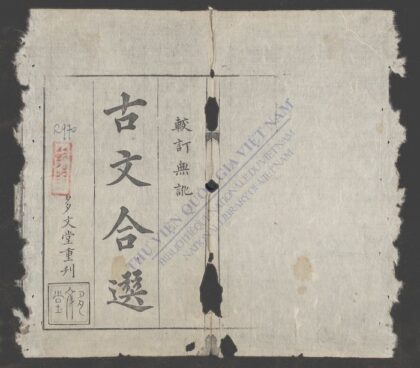 較訂無訛
古文合選
多文堂重刊
THƯ VIỆN QUỐC GIA VIỆT NAM
BIBLIOTHÈQUE NATIONALE DU VIETNAM
NATIONAL LIBRARY OF VIETNAM